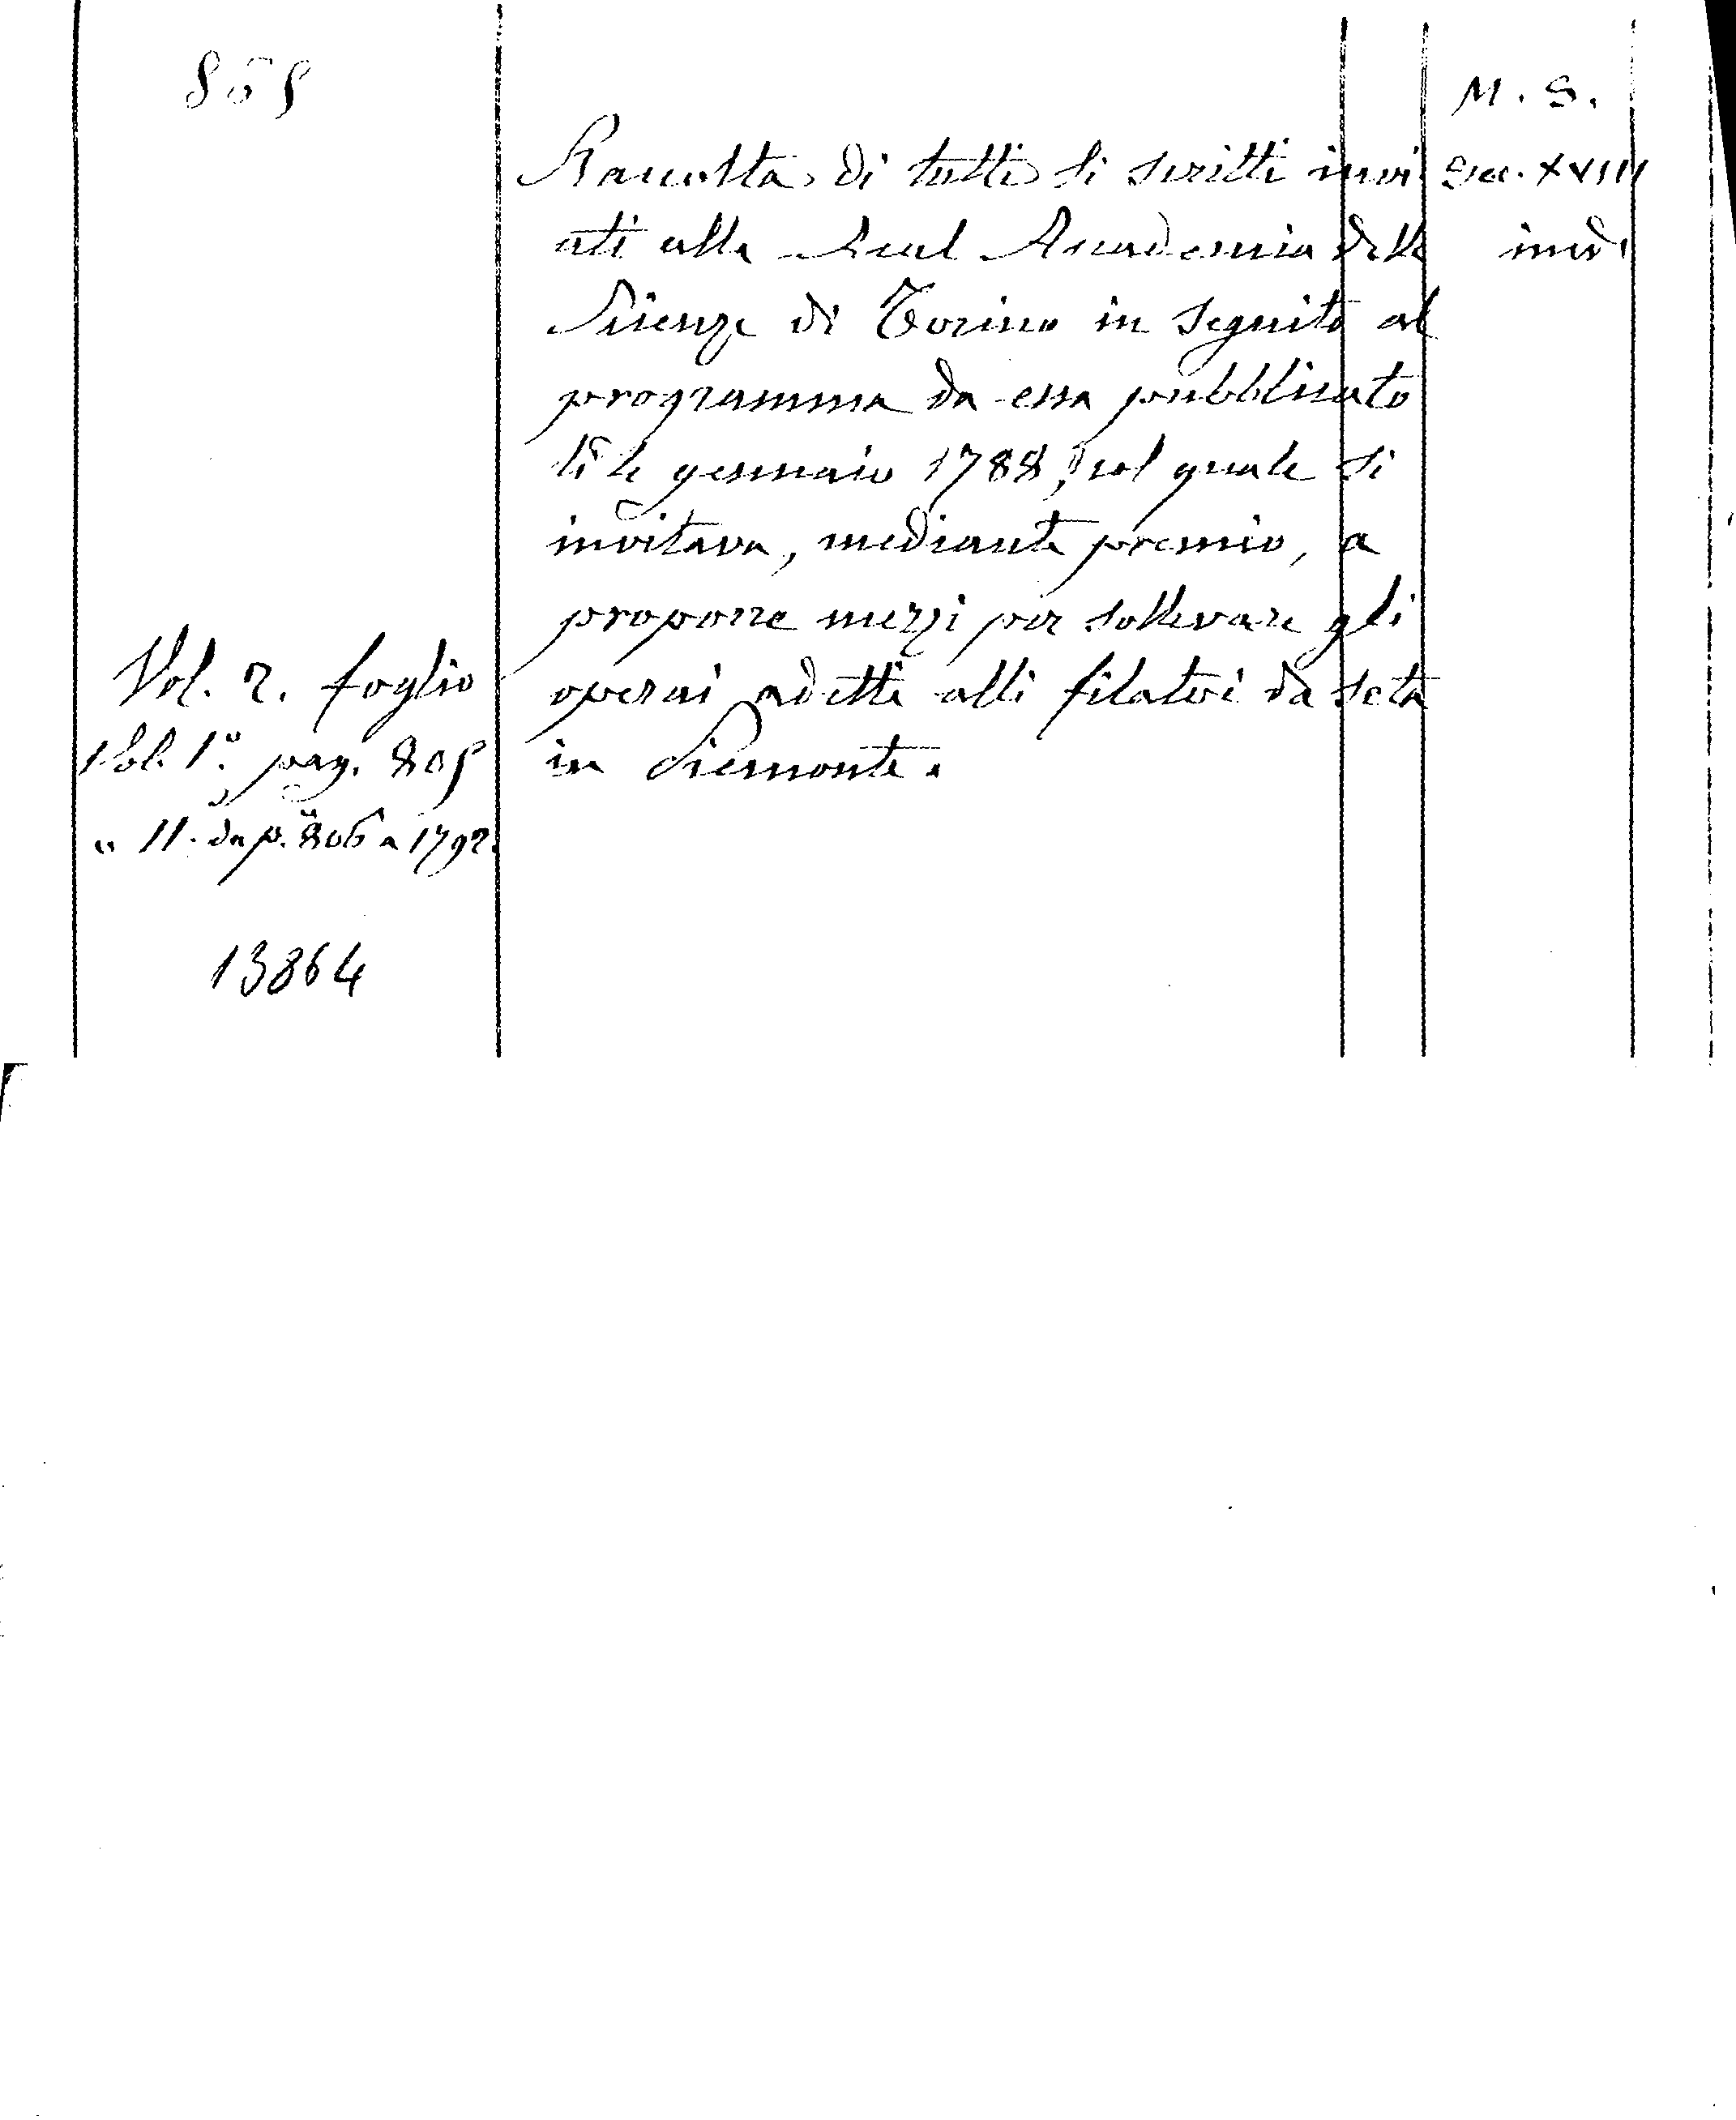 805
M. S.
Raccolta di tutti li scritti invi
Sec. XVIII
ati alla Real Accademia delle
ined.
Scienze di Torino in seguito al
programma da essa pubblicato
li 4 gennaio 1788, col quale si
invitava, mediante premio, a
proporre mezzi per sollevare gli
operai adetti alli filatoi da seta
in Piemonte.
Vol. 2. foglio
Vol. 1º. pag. 805
" II. da p. 806 a 1792.
13864